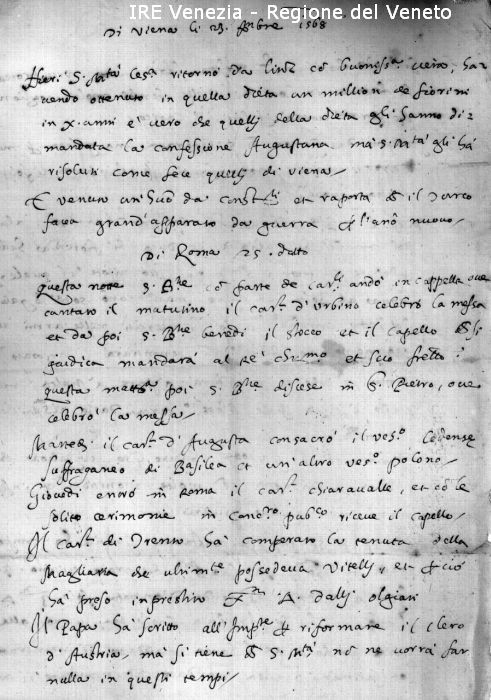 IRE Venezia - Regione del Veneto
Di Viena li 23 Xbre 1568
Hieri S. Mta Cesa ritornò da Linz cō buonissa vera, ha=
vendo ottenuto in quella dieta un million de fiorini
in X. anni è vero che quelli della dieta gli hanno di=
mandata la confessione Augustana ma S. Mtà gli hà
risoluti come fece quelli di Viena
È venuto un huō da et raporta il Turco
facea grand'apparato da guerra nuovo
Di Roma 25. detto
questa notte S. Bne cō parte de Carli andò in cappella ove
cantato il matutino il Carl d'Urbino celebrò la messa
et da poi S. Bne benedì il stocco et il capello
giudica mandarà al Rè chrmo et suo frello
questa matta poi S. Bne discese in S. Pietro, ove
celebrò la messa
Martedì il Carl d'Augusta consacrò il vesco
suffraganeo di Basilea et un'altro vesco polono
Giovedì entrò in Roma il Carl Chiaravalle, et cō le
solito cerimonie in concro pubco riceve il capello
Il Carl di Trento hà comperato la tenuta della
Magliana che ultimte possedeva Vitelli, et ciò
hà preso inprestito dalli Olgiati
Il Papa hà scritto all'Impre riformare il clero
d'Austria, ma si tiene S. Mtà nō ne vorrà far
nulla in questi tempi